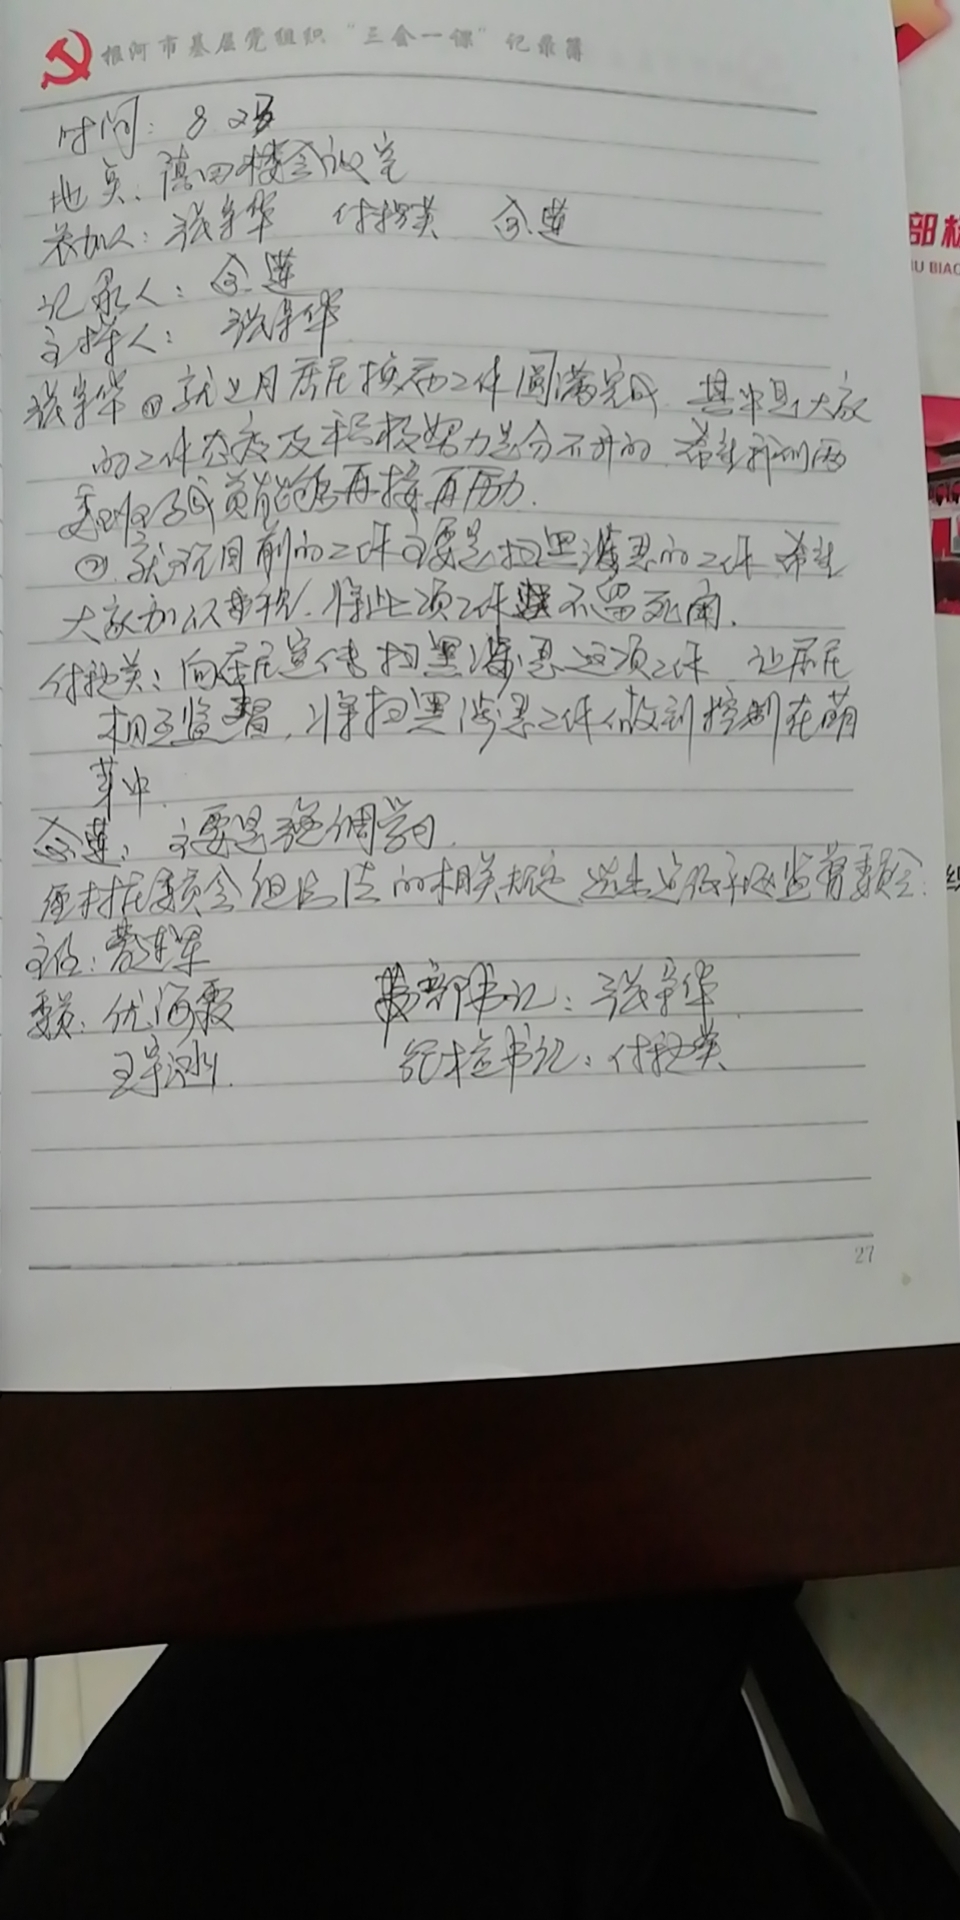 根河市基层党组织“三会一课”记录簿
时间: 8.23
地点: 楼会议室
参加人: 张宇华 付艳英 金莲
记录人: 金莲
主持人: 张宇华
张宇华 ① 就上月居民换届工作圆满完成 其中是大家
的工作态度及积极努力是分不开的. 希望我们两
委班子成员能够再接再历.
② 就说目前的工作主要是扫黑除恶的工作 希望
大家加以重视. 将此项工作 不留死角.
付艳英: 向居民宣传扫黑除恶这项工作 让居民
相互监督, 将扫黑除恶工作做到控制在萌
芽中.
金莲: 主要是强调学习.
村居委员会组织法的相关规定 选出 监督委员会:
主任:
委员: 支部书记: 张宇华
纪检书记: 付艳英
27
部